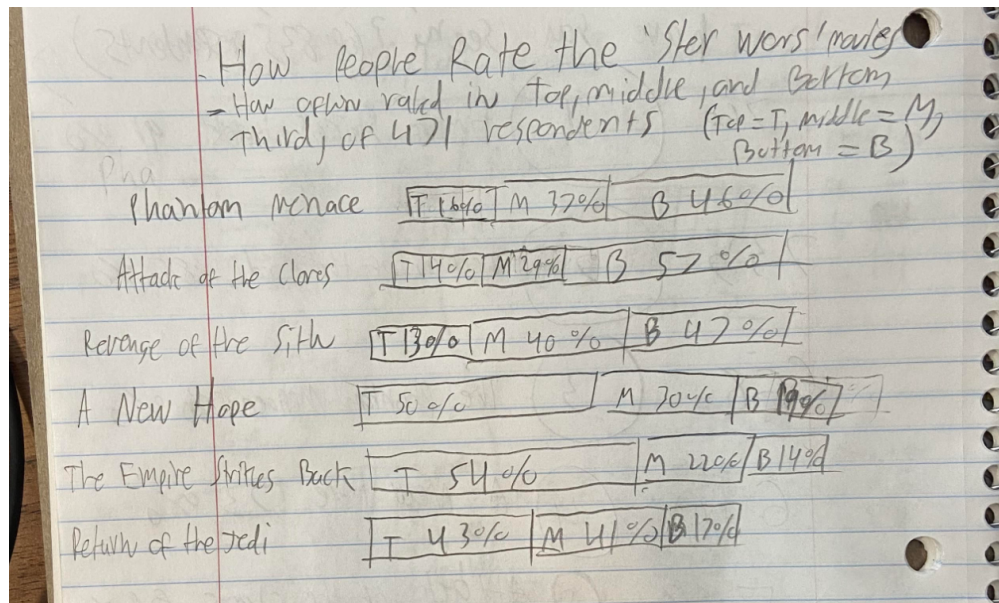 - How People Rate the 'Ster wors' movies
- How opwn rated in top, middle, and Bottom
Third, of 471 respondents (Top = T, Middle = M,
Bottom = B)
Phantom Menace T 16% M 37% B 46%
Attack of the Clones T 14% M 29% B 57%
Revenge of the Sith T 13% M 40% B 47%
A New Hope T 50% M 30% B 19%
The Empire Strikes Back T 54% M 22% B 14%
Return of the Jedi T 43% M 41% B 17%